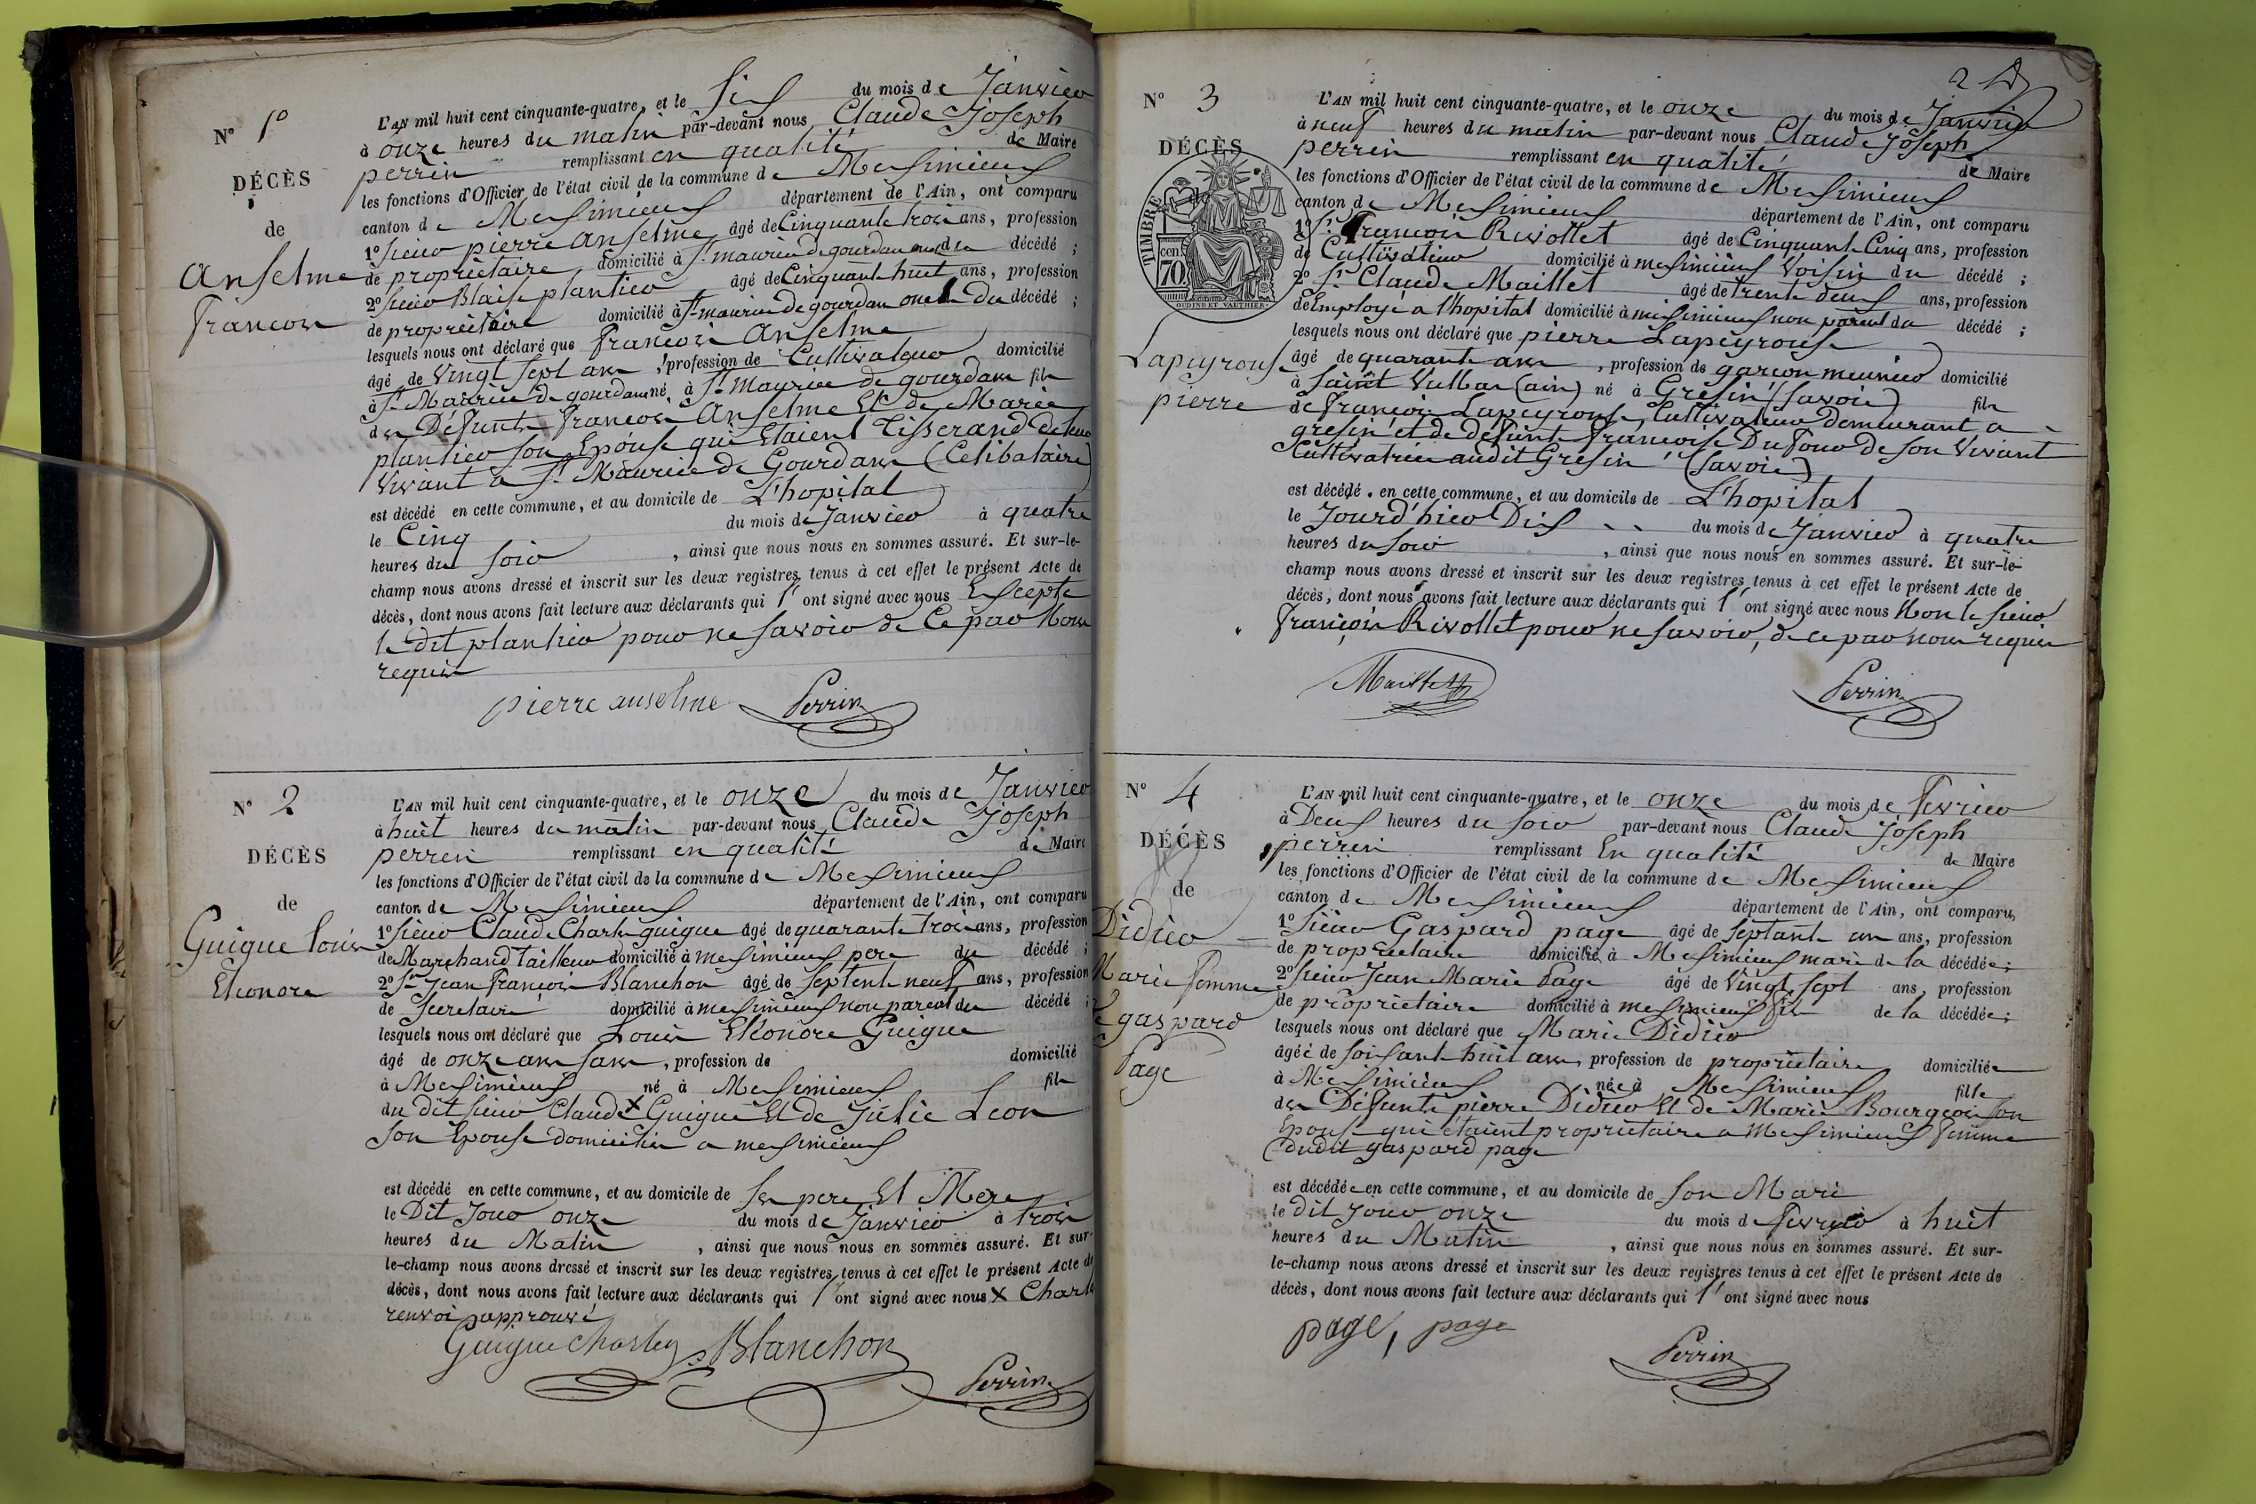 N° 1°
DÉCÈS
de
Anselme
francois
L'AN mil huit cent cinquante-quatre, et le Six du mois de Janvier
à onze heures du matin par-devant nous Claude Joseph
perrin remplissant en qualité de Maire
les fonctions d'Officier de l'état civil de la commune de Meximieux
canton de Meximieux département de l'Ain, ont comparu
1° sieur pierre Anselme âgé de Cinquante trois ans, profession
de propriétaire domicilié à St maurice de gourdan oncle du décédé ;
2° sieur Blaise plantier âgé de Cinquante huit ans, profession
de propriétaire domicilié à St maurice de gourdan oncle du décédé ;
lesquels nous ont déclaré que francois Anselme
âgé de Vingt sept ans, profession de Cultivateur domicilié
à St Maurice de gourdans né à St Maurice de gourdans fils
des Défunts francois Anselme Et de Marie
plantier son Epouse qui Etaient Tisserand de leur
vivant a St Maurice de Gourdans (Celibataire)
est décédé en cette commune, et au domicile de L'hopital
le Cinq du mois de Janvier à quatre
heures du soir, ainsi que nous nous en sommes assuré. Et sur-le-
champ nous avons dressé et inscrit sur les deux registres tenus à cet effet le présent Acte de
décès, dont nous avons fait lecture aux déclarants qui l' ont signé avec nous Excepté
le dit plantier pour ne savoir de Ce par Nous
requis
pierre anselme Perrin
N° 2
DÉCÈS
de
Guigue Louis
Eleonore
L'AN mil huit cent cinquante-quatre, et le onze du mois de Janvier
à huit heures du matin par-devant nous Claude Joseph
perrin remplissant en qualité de Maire
les fonctions d'Officier de l'état civil de la commune de Meximieux
canton de Meximieux département de l'Ain, ont comparu
1° sieur Claude Charle guigue âgé de quarante trois ans, profession
de Marchand Tailleur domicilié à meximieux pere du décédé ;
2° Sr Jean francois Blanchon âgé de septente neuf ans, profession
de secretaire domicilié à meximieux non parent du décédé ;
lesquels nous ont déclaré que Louis Eléonore Guigue
âgé de onze ans sans, profession de domicilié
à Meximieux né à Meximieux fils
du dit sieur Claude x Guigue Et de Julie Leon
son Epouse domiciliés a meximieux
est décédé en cette commune, et au domicile de ses pere Et Mere
le Dit Jour onze du mois de Janvier à trois
heures du Matin, ainsi que nous nous en sommes assuré. Et sur-
le-champ nous avons dressé et inscrit sur les deux registres tenus à cet effet le présent Acte de
décès, dont nous avons fait lecture aux déclarants qui l' ont signé avec nous x Charle
renvoi approuvé
Guigue Charles Blanchon
Perrin
2
N° 3
DÉCÈS
TIMBRE
70 cen
OUDINE ET VAUTHIER
Lapeyrouse
pierre
L'AN mil huit cent cinquante-quatre, et le onze du mois de Janvier
à neuf heures du matin par-devant nous Claude Joseph
perrin remplissant en qualité de Maire
les fonctions d'Officier de l'état civil de la commune de Meximieux
canton de Meximieux département de l'Ain, ont comparu
1° Sr francois Rivollet âgé de Cinquante Cinq ans, profession
de Cultivateur domicilié à meximieux Voisin du décédé ;
2° Sr Claude Maillet âgé de trente deux ans, profession
de Employé a l'hopital domicilié à meximieux non parent du décédé ;
lesquels nous ont déclaré que pierre Lapeyrouse
âgé de quarante ans, profession de garcon meunier domicilié
à saint Vulbas (ain) né à Gresin (Savoie) fils
de francois Lapeyrouse Cultivateur demeurant a
gresin et de défunte francoise Dufour de son Vivant
Cultivatrice audit Gresin (Savoie)
est décédé en cette commune, et au domicile de L'hopital
le Jourd'hier Dix du mois de Janvier à quatre
heures du soir, ainsi que nous nous en sommes assuré. Et sur-le-
champ nous avons dressé et inscrit sur les deux registres tenus à cet effet le présent Acte de
décès, dont nous avons fait lecture aux déclarants qui l' ont signé avec nous Non le sieur
francois Rivollet pour ne savoir, de ce par nous requis
Maillet Perrin
N° 4
DÉCÈS
de
Didier
Marie femme
de gaspard
Page
L'AN mil huit cent cinquante-quatre, et le onze du mois de fevrier
à Deux heures du soir par-devant nous Claude Joseph
perrin remplissant En qualité de Maire
les fonctions d'Officier de l'état civil de la commune de Meximieux
canton de Meximieux département de l'Ain, ont comparu
1° Sieur Gaspard page âgé de septante un ans, profession
de propriétaire domicilié à Meximieux mari de la décédée ;
2° sieur Jean Marie Page âgé de Vingt sept ans, profession
de propriétaire domicilié à meximieux fils de la décédée ;
lesquels nous ont déclaré que Marie Didier
âgée de soixante huit ans, profession de propriétaire domiciliée
à Meximieux née à Meximieux fille
des Défunts pierre Didier Et de Marie Bourgeois son
Epouse qui étaient propriétaire a Meximieux femme
dudit gaspard page
est décédée en cette commune, et au domicile de son Mari
le dit jour onze du mois de fevrier à huit
heures du Matin, ainsi que nous nous en sommes assuré. Et sur-
le-champ nous avons dressé et inscrit sur les deux registres tenus à cet effet le présent Acte de
décès, dont nous avons fait lecture aux déclarants qui l' ont signé avec nous
page, page
Perrin